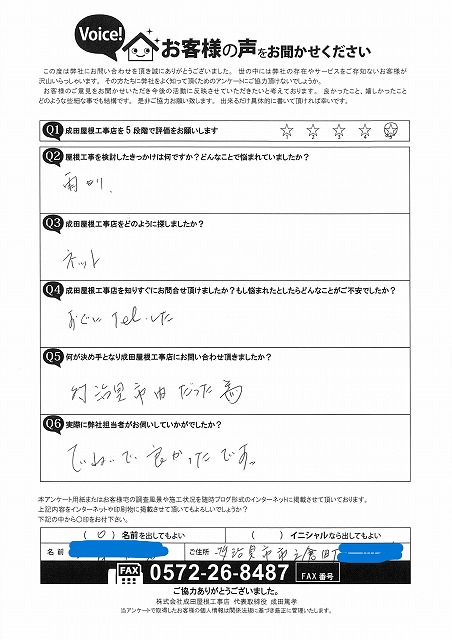 Voice!
お客様の声をお聞かせください
この度は弊社にお問い合わせを頂き誠にありがとうございました。 世の中には弊社の存在やサービスをご存知ないお客様が
沢山いらっしゃいます。 その方たちに弊社をよく知って頂くためのアンケートにご協力頂けないでしょうか。
お客様のご意見をお聞かせいただき今後の活動に反映させていきたいと考えております。 良かったこと、嬉しかったこと
どのような些細な事でも結構です。 是非ご協力お願い致します。 出来るだけ具体的に書いて頂ければ幸いです。
Q1 成田屋根工事店を5段階で評価をお願いします
1 2 3 4 5
Q2 屋根工事を検討したきっかけは何ですか?どんなことで悩まれていましたか?
雨もり、
Q3 成田屋根工事店をどのように探しましたか?
ネット
Q4 成田屋根工事店を知りすぐにお問合せ頂けましたか?もし悩まれたとしたらどんなことがご不安でしたか?
すぐに Tel した
Q5 何が決め手となり成田屋根工事店にお問い合わせ頂きましたか?
多治見市内だった為
Q6 実際に弊社担当者がお伺いしていかがでしたか?
ていねいで良かったです。
本アンケート用紙またはお客様宅の調査風景や施工状況を随時ブログ形式のインターネットに掲載させて頂いております。
上記内容をインターネットや印刷物に掲載させて頂いてもよろしいでしょうか?
下記の中から〇印をお付け下さい。
( 〇 ) 名前を出してもよい ( ) イニシャルなら出してもよい
名前 ご住所 多治見市市之倉町
FAX 0572-26-8487 FAX 番号
ご協力ありがとうございました。
株式会社成田屋根工事店 代表取締役 成田篤孝
当アンケートで取得したお客様の個人情報は関係法規に基づき厳正に管理いたします。